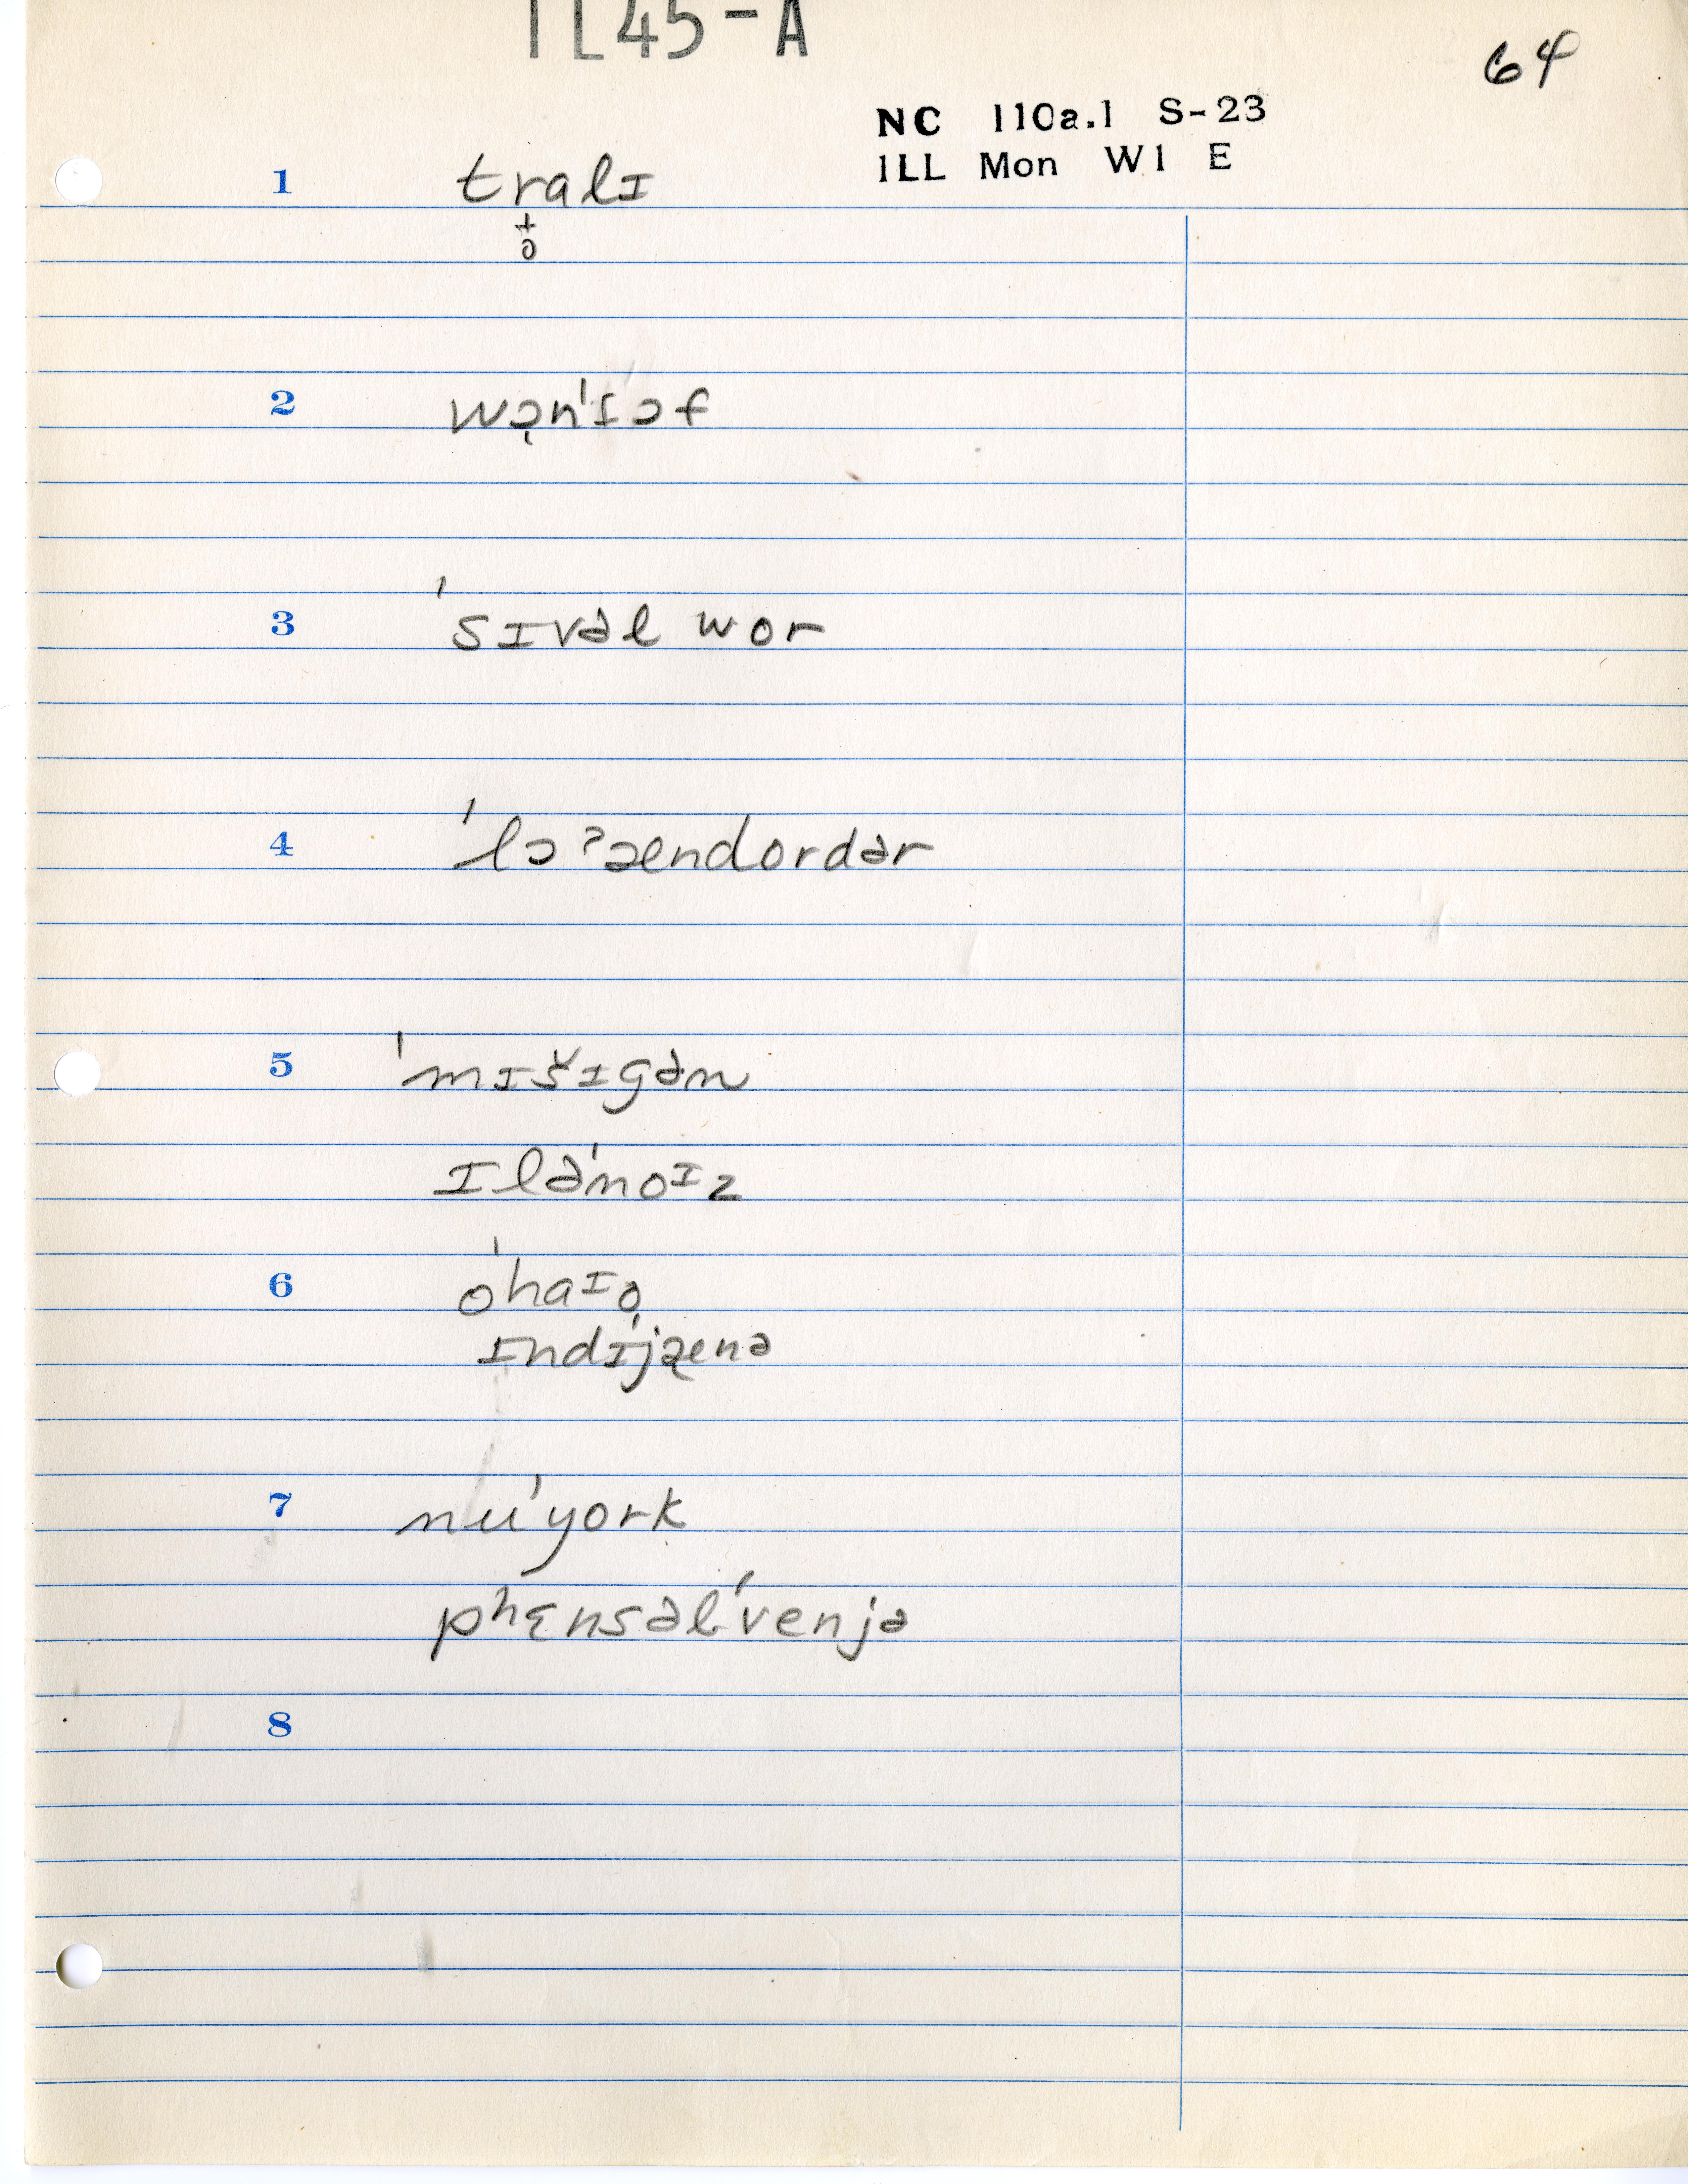 IL45-A
64
NC 110a.1 S-23
ILL Mon W1 E
1 tralɪ
+
o
2 wɔn'sɔf
3 'sɪvəl wor
4 'lɔ ʔændordər
5 'mɪšɪgən
ɪlə'noɪz
6 o'haɪo
ɪndɪjænə
7 nu'york
pʰɛnsəl'venjə
8